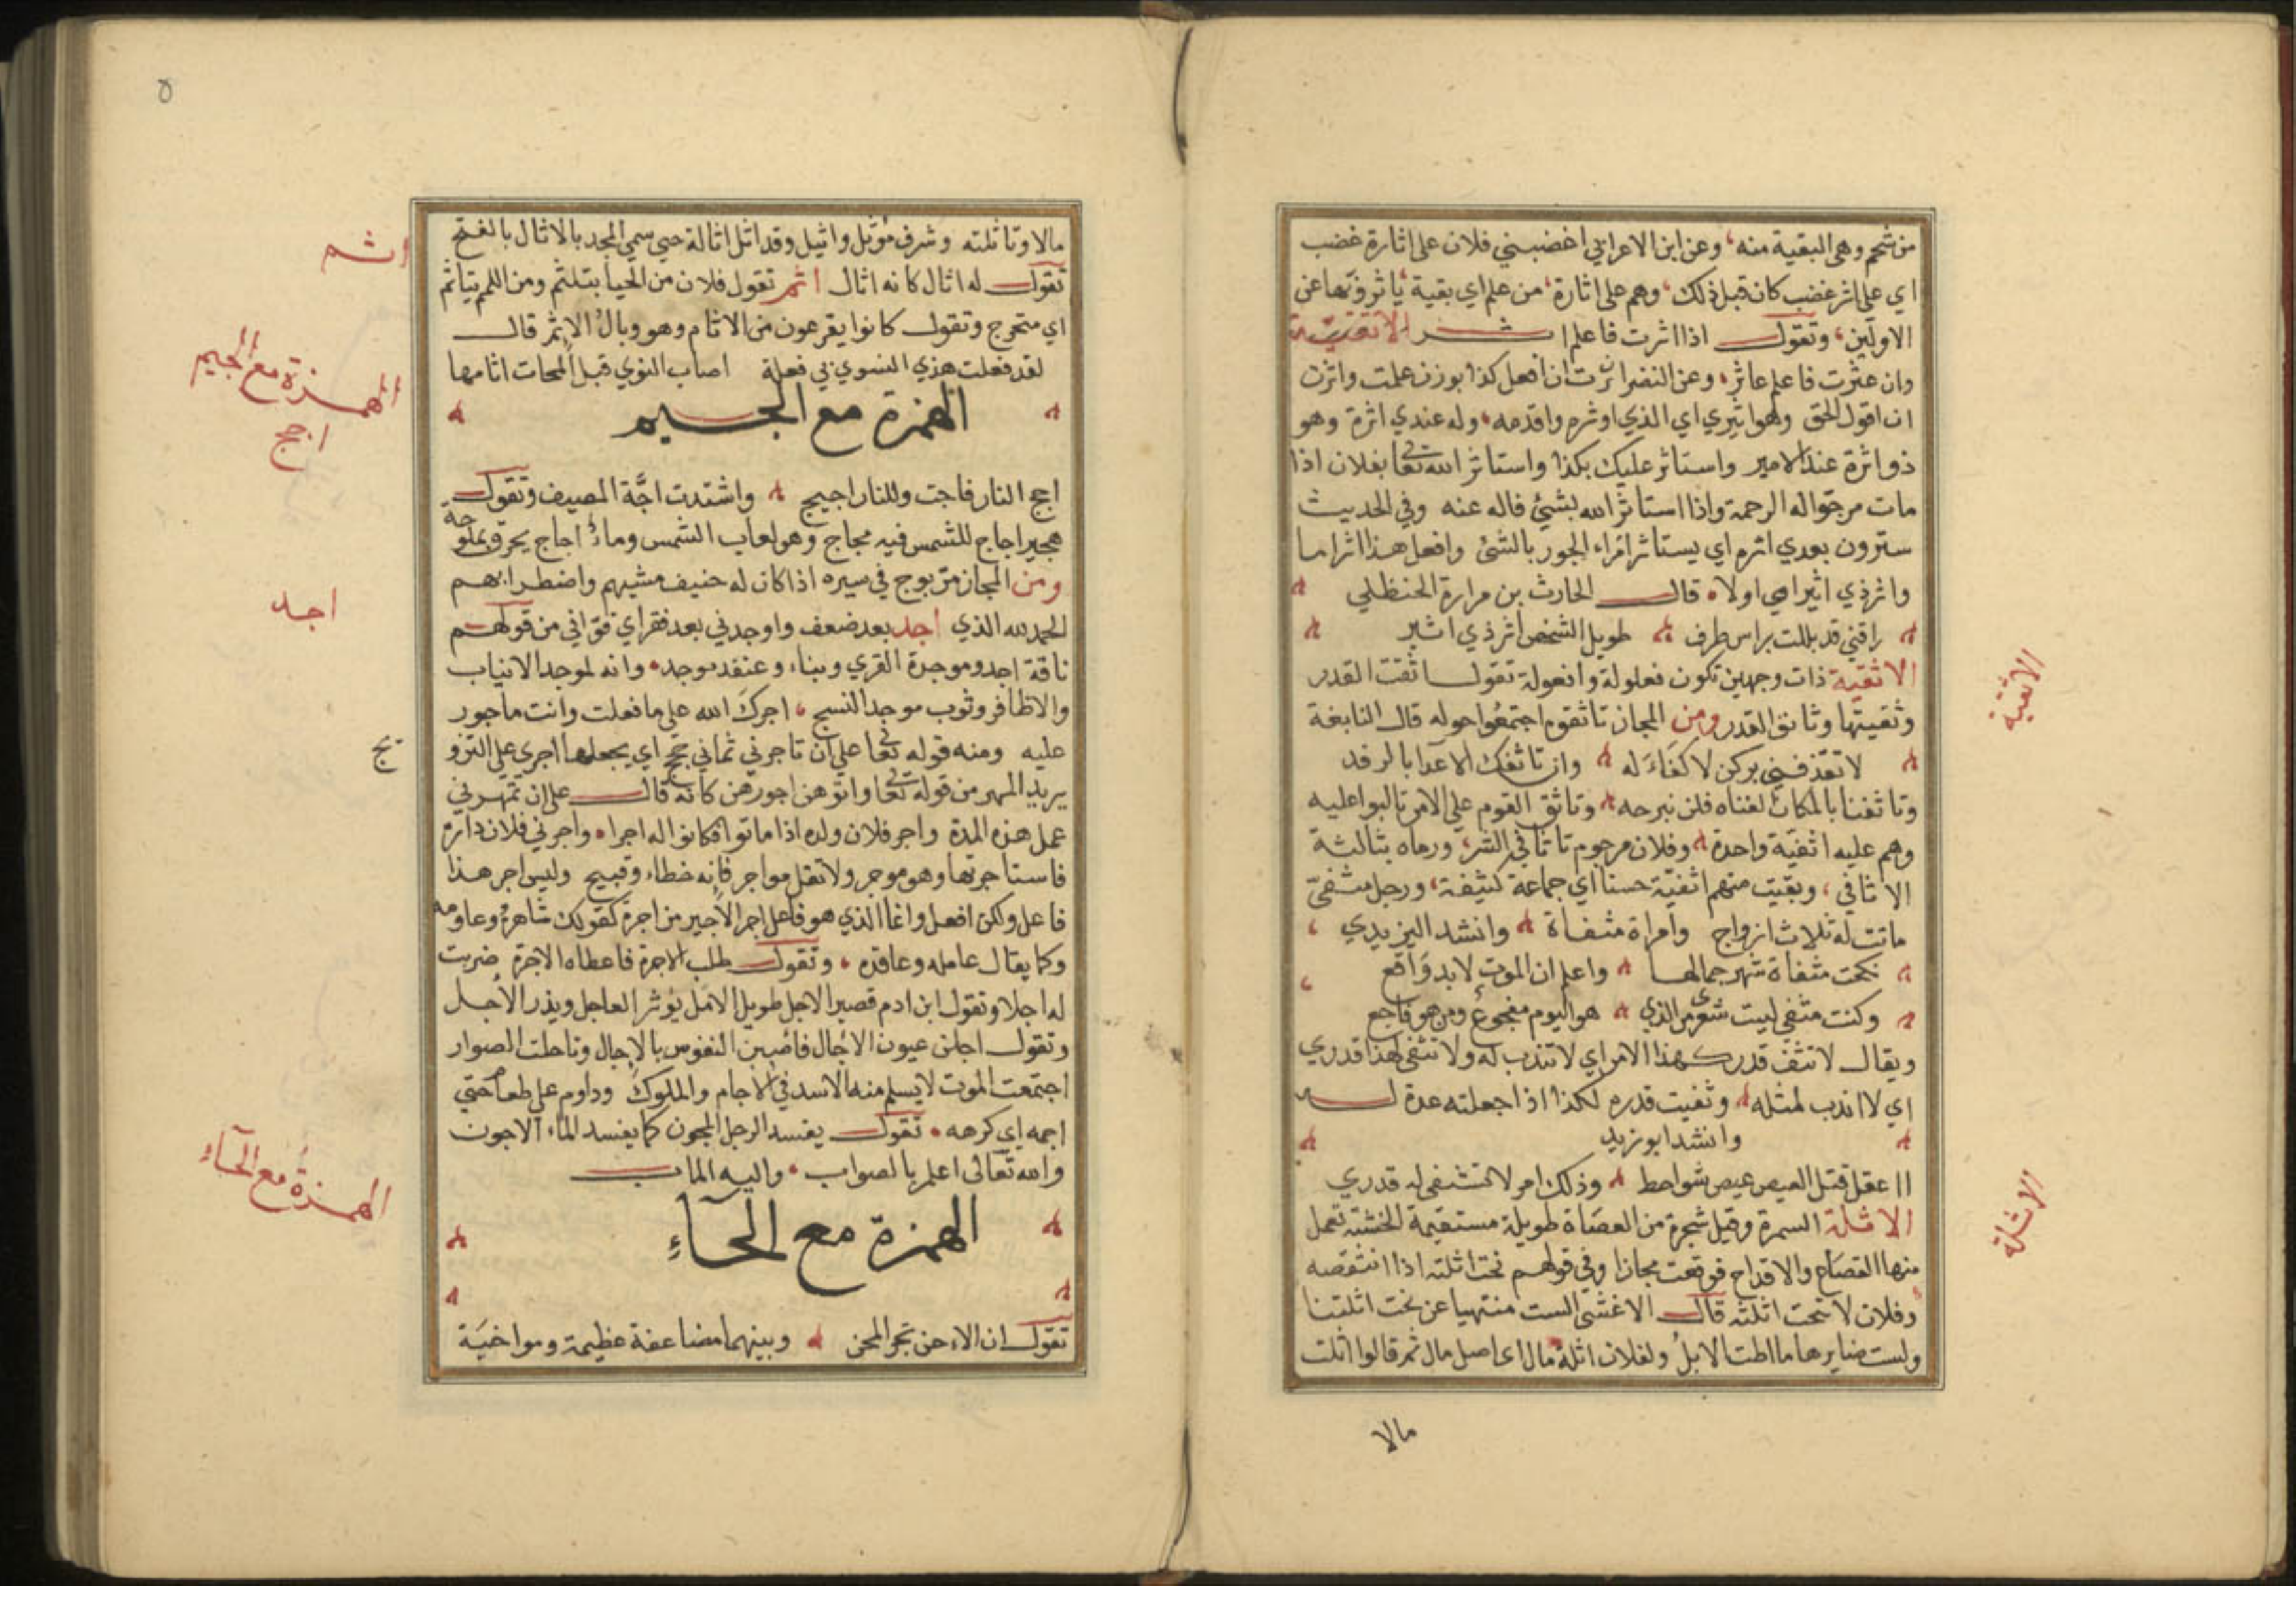 من شحم وهي البقية منه، وعن ابن الاعرابي اغضبني فلان على اثارة غضب
اي على اثر غضب كان قبل ذلك، وهم على اثارة، من علم اي بقية ياثرونها عن
الاولين، وتقول اذا اثرت فاعلم
وان عثرت فاعلم عاثر، وعن النضر اثرت ان افعل كذا بوزن علمت واثرت
ان اقول الحق وهو اثيري اي الذي اوثره واقدمه، وله عندي اثرة وهو
ذو اثرة عند الامير واستاثر عليك بكذا واستاثر الله تعا بفلان اذا
مات مرجوا له الرحمة واذا استاثر الله بشيئ فاله عنه وفي الحديث
سترون بعدي اثرة اي يستاثر امراء الجور بالشئ وافعل هذا اثرا ما
واثر ذي اثير اي اولا، قال الحارث بن مرارة الحنظلي
راقني قد بللت براس طرف طويل الشخص اثر ذي اثير
الاثفية ذات وجهين تكون فعلولة وافعولة تقول اثفت القدر
وثفيتها وثانق القدر ومن المجاز تاثقوم اجتمعوا حوله قال النابغة
لا تقذفني بركن لا كفاء له وان تاثفك الاعدا بالرفد
وتاثفنا بالمكان لغناه فلن نبرحه وتاثق القوم علي الامر تالبوا عليه
وهم عليه اثفية واحدة وفلان مرجوم تاثافي الشر، ورماه بثالثة
الاثافي، وبقيت منهم اثفية حسنا اي جماعة كثيفة، ورجل مثفي
ماتت له ثلاث ازواج وامراة مثفاة وانشد اليزيدي
نكحت مثفاة شهر جمالها واعلم ان الموت لابد واقع
وكنت مثفي ليت شعري من الذي هو اليوم مفجوع ومن هو فاجع
ويقال لا تثف قدرك لهذا الامر اي لا تندب له ولا تثفي لهذا قدري
اي لا اندب لمثله وثفيت قدره لكذا اذا جعلته عدة له
وانشد ابو زيد
ااعقل قتل العيص عيص شواحط وذلك امر لا تثفى له قدري
الاثلة السمرة وقيل شجرة من العضاة طويلة مستقيمة الخشبة تعمل
منها القصاع والاقداح فوقعت مجازا وفي قولهم نحت اثلته اذا انتقصه
وفلان لا تنحت اثلته قال الاغشى الست منتهيا عن نحت اثلتنا
ولست ضايرها ما اطت الابل ولفلان اثلة مال اي اصل مال ثم قالوا اثلت
مالا
الاثفية
الاثلة
٥
مالا وتاثلته وشرف موثل واثيل وقد اثل اثالة حتي سمي المجد بالاثال بالفتح
تقول له اثال كانه اثال اثم تقول فلان من الحيا يتلثم ومن اللمم يتاثم
اي متحرج وتقول كانوا يفزعون من الاثام وهو وبال الاثم قال
لقد فعلت هذي النوي بي فعلة اصاب النوي قبل الممات اثامها
الهمزة مع الجيم
اجج النار فاجت وللنار اجيج واشتدت اجة المصيف وتقول
هجير اجاج للشمس فيه مجاج وهو لعاب الشمس وماء اجاج يحرق بملوحة
ومن المجاز مر يوج في سيره اذا كان له حفيف مشيهم واضطرابهم
الحمد لله الذي اجد بعد ضعف واوجدني بعد فقر اي قواني من قولهم
ناقة اجد وموجدة القري وبناء وعنقد موجد، وانه لموجد الانياب
والاظافر وثوب موجد النسج، اجرك الله على ما فعلت وانت ماجور
عليه ومنه قوله تعا على ان تاجرني ثماني حجج اي يجعلها اجري على التزو
يج
يريد المهر من قوله تعا واتوهن اجورهن كانه قال على ان تمهرني
عمل هذه المدة واجر فلان ولده اذا ماتوا فكانوا له اجرا، واجرني فلان داره
فاستاجرتها وهو موجر ولا تقل مواجر فانه خطاء وقبيح وليس اجر هذا
فاعل ولكن افعل وانما الذي هو فاعل اجر الاجير من اجرة كقولك شاهره وعاومه
وكما يقال عامله وعاقده، وتقول طلب الاجرة فاعطاه الاجرة ضربت
له اجلا وتقول ابن ادم قصير الاجل طويل الامل يوثر العاجل ويذر الاجل
وتقول اجلن عيون الاجال فاصبن النفوس بالاجال وتاجلت الصوار
اجتمعت الموت لا يسلم منه الاسد في الاجام والملوك وداوم على طعام حتي
اجمه اي كرهه، تقول يفسد الرجل المجون كما يفسد الماء الاجون
والله تعالى اعلم بالصواب، واليه الماب
الهمزة مع الحاء
تقول ان الاحن تجر المحن وبينهما مضاعفة عظيمة ومواخية
اثم
الهمزة مع الجيم
اجج
اجد
الهمزة مع الحاء